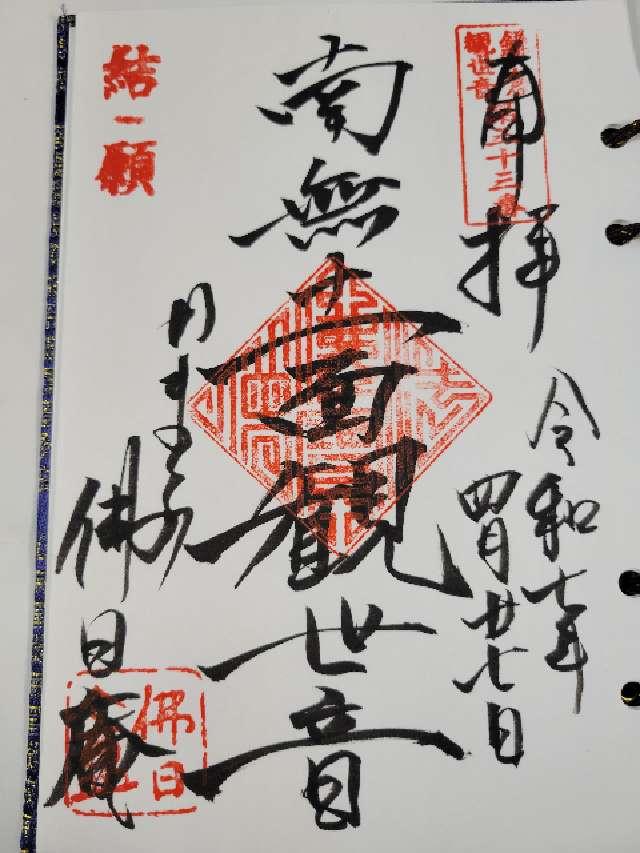 奉拝
令和七年
四月廿七日
南無
十一面観世音
佛日庵
結願
三十三番
観世音
佛日